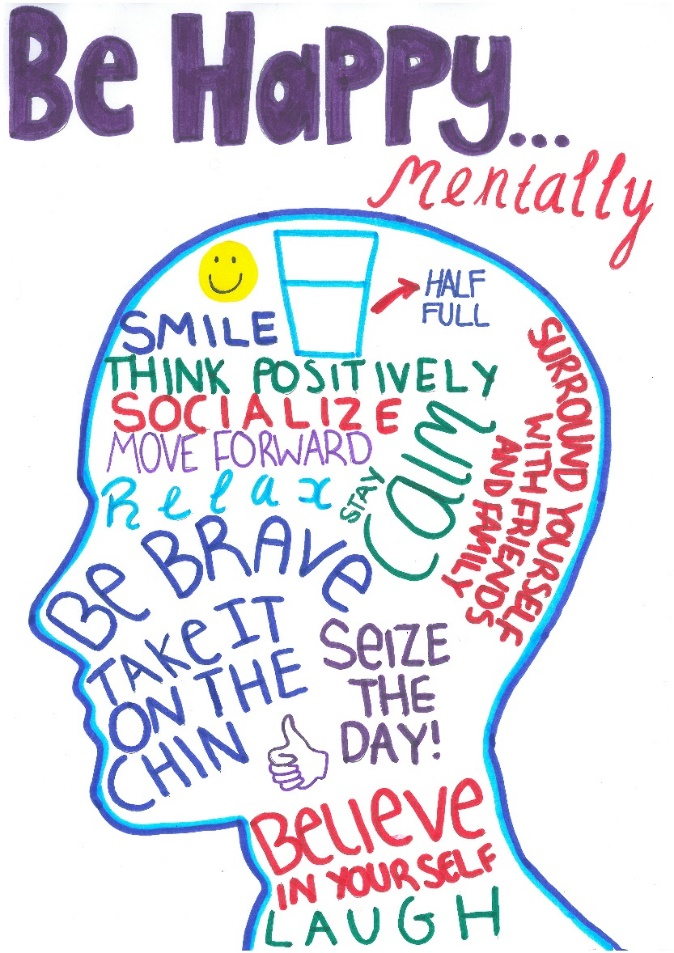 Be Happy...
Mentally
HALF
FULL
SMILE
THINK POSITIVELY
SOCIALIZE
MOVE FORWARD
Relax
STAY
CalM
SURROUND YOURSELF
WITH FRIENDS
AND FAMILY
Be BRAVe
TAKe IT
ON THE
CHIN
SeIZE
THE
DAY!
BelIeVe
IN YOURSELF
LAUGH